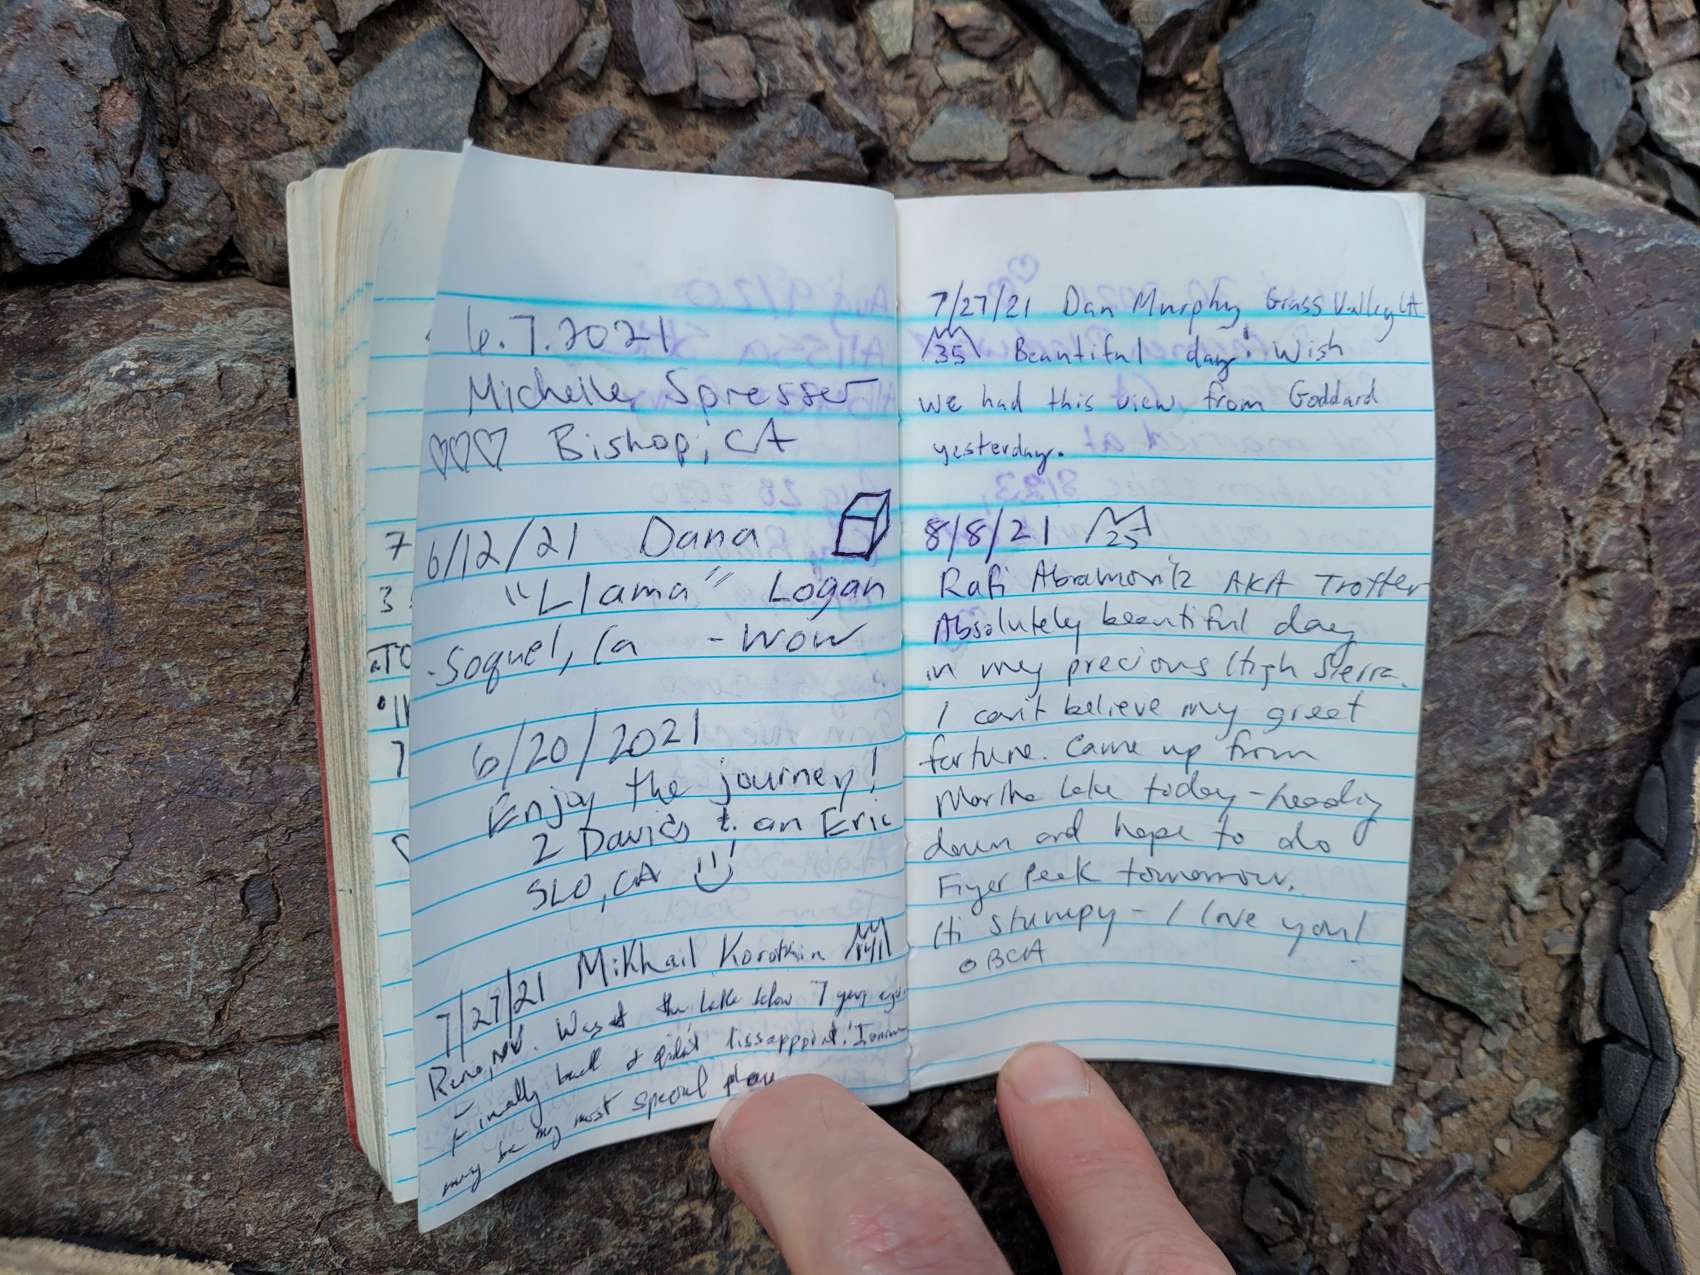 6.7.2021
Michelle Spresser
Bishop, CA
6/12/21 Dana
"Llama" Logan
Soquel, Ca - WOW
6/20/2021
Enjoy the journey!
2 David's & an Eric
SLO, CA
7/27/21 Mikhail Korotkin
Reno, NV. Was at the lake below 7 years ago.
Finally back & didn't dissappoint!
may be my most special place
7/27/21 Dan Murphy Grass Valley CA
35 Beautiful day! Wish
we had this view from Goddard
yesterday.
8/8/21 25
Rafi Abramovitz AKA Trotter
Absolutely beautiful day
in my precious High Sierra.
I can't believe my great
fortune. Came up from
Martha Lake today - heading
down and hope to do
Finger Peak tomorrow.
Hi Stumpy - I love you!
OBCA
7
3